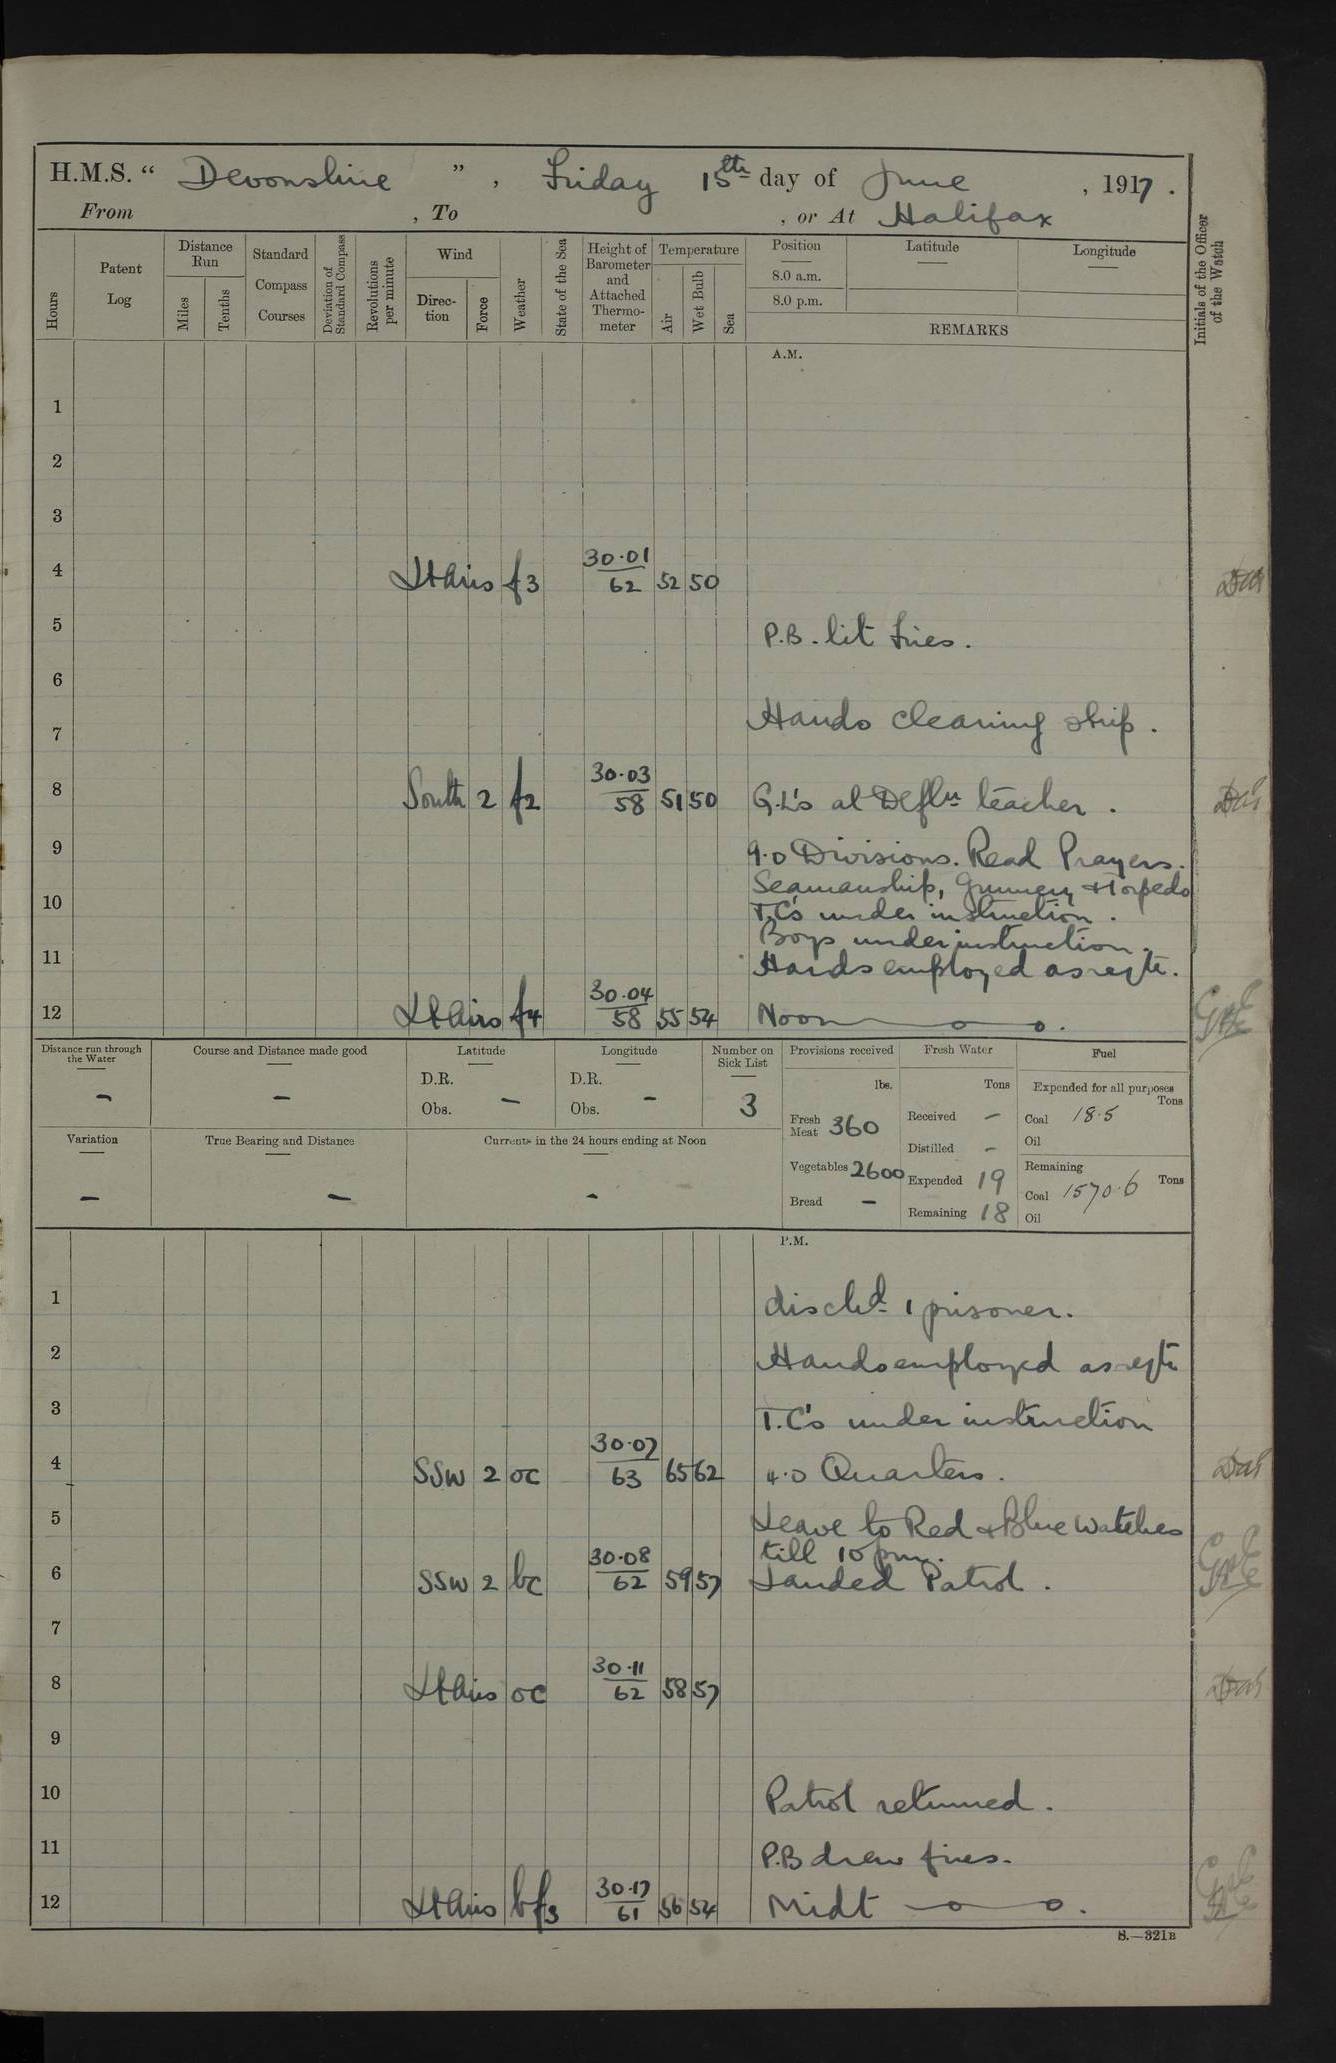 H.M.S. “ Devonshire ” , Friday 15th day of June , 1917 .
From , To , or At Halifax
Hours
Patent Log
Distance Run
Miles
Tenths
Standard Compass Courses
Deviation of Standard Compass
Revolutions per minute
Wind
Direc- tion
Force
Weather
State of the Sea
Height of Barometer and Attached Thermo- meter
Temperature
Air
Wet Bulb
Sea
Position
8.0 a.m.
8.0 p.m.
Latitude
Longitude
REMARKS
Initials of the Officer of the Watch
A.M.
1
2
3
4 Lt Airs f3 30.01 62 52 50
5 P.B. lit fires.
6
Hands cleaning ship.
7
8 South 2 f2 30.03 58 51 50 G.L's at Deflr teacher.
9 9.0 Divisions. Read Prayers.
Seamanship, Gunnery & Torpedo
10 T.C's under instruction.
Boys under instruction.
11 Hands employed as reqte.
12 Lt Airs f4 30.04 58 55 54 Noon
Distance run through the Water
–
Course and Distance made good
–
Latitude
D.R.
Obs. –
Longitude
D.R.
Obs. –
Number on Sick List
3
Provisions received
lbs.
Fresh Meat 360
Vegetables 2600
Bread –
Fresh Water
Tons
Received –
Distilled –
Expended 19
Remaining 18
Fuel
Expended for all purposes
Tons
Coal 18.5
Oil
Remaining
Coal 1570.6 Tons
Oil
Variation
–
True Bearing and Distance
–
Currents in the 24 hours ending at Noon
–
P.M.
1 dischd 1 prisoner.
2 Hands employed as reqte
3 T.C's under instruction
4 SSW 2 oc 30.07 63 65 62 4.0 Quarters.
5 Leave to Red & Blue Watches
till 10 pm.
6 SSW 2 bc 30.08 62 59 57 Landed Patrol.
7
8 Lt Airs oc 30.11 62 58 57
9
10 Patrol returned.
11 P.B drew fires.
12 Lt Airs bf3 30.17 61 56 54 Midt
S.—321B